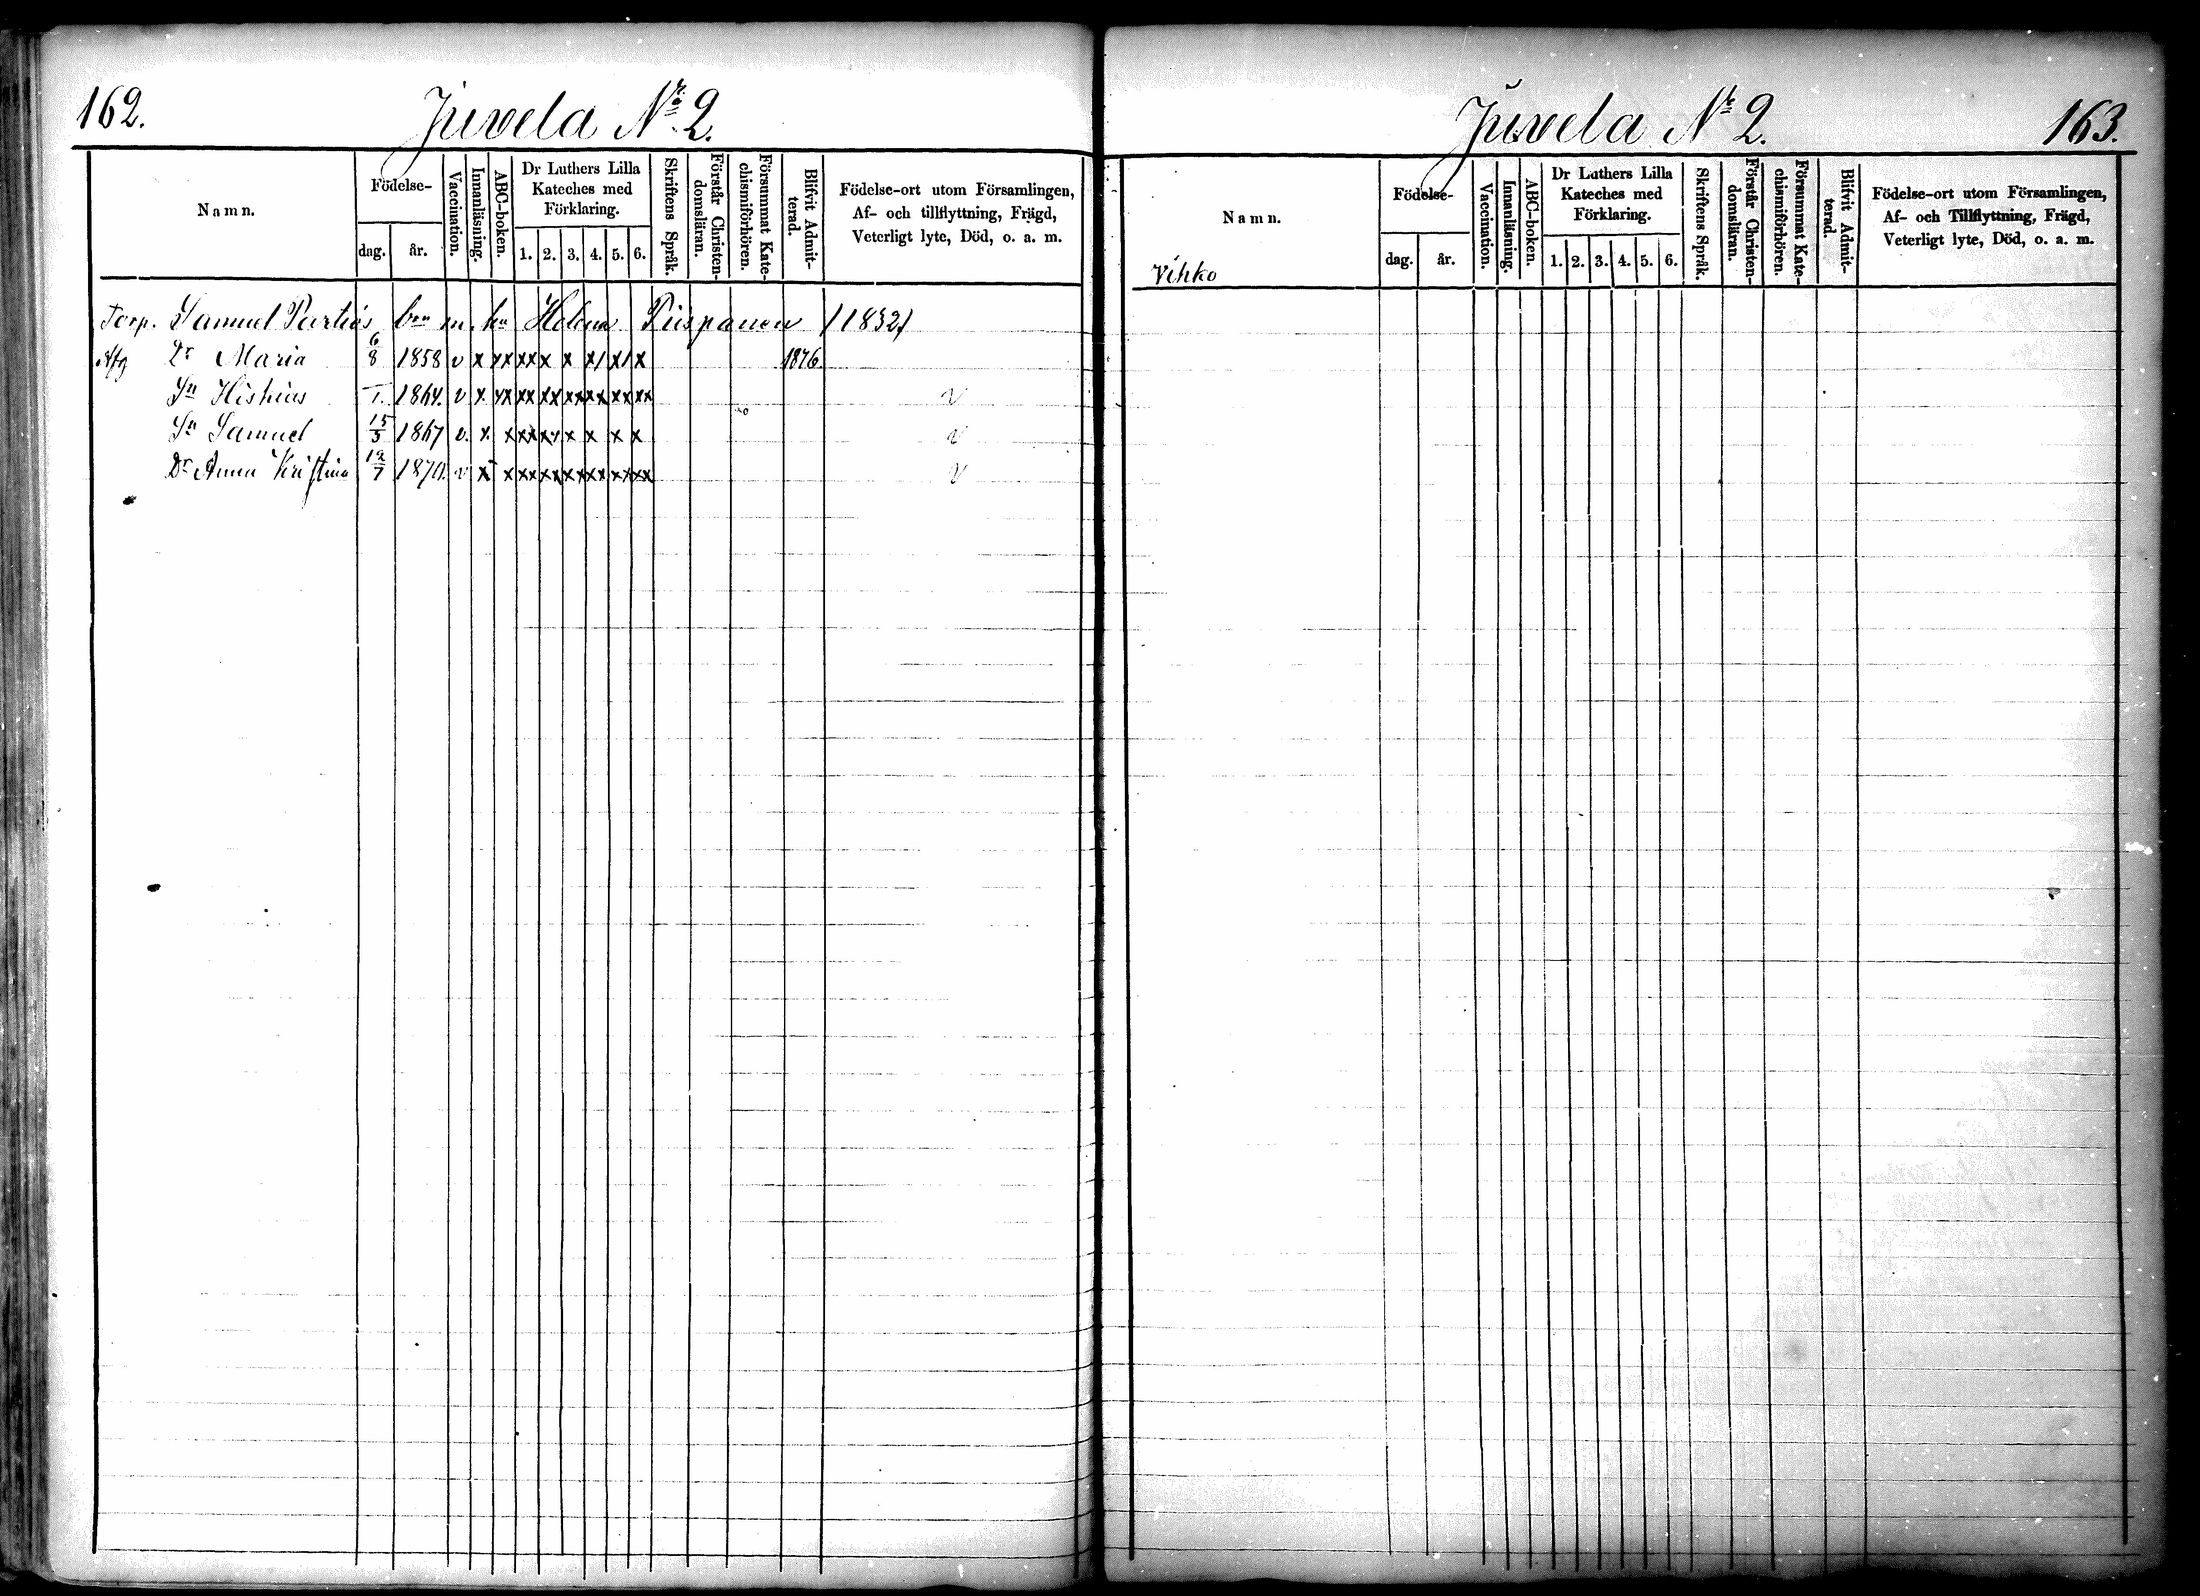 162.
Juvela No 2.
Namn.
Födelse-
dag.
år.
Vaccination.
Innanläsning.
ABC-boken.
Dr Luthers Lilla
Kateches med
Förklaring.
1. 2. 3. 4. 5. 6.
Skriftens Språk.
Förstår Christen-
domsläran.
Försummat Kate-
chismiförhören.
Blifvit Admit-
terad.
Födelse-ort utom Församlingen,
Af- och tillflyttning, Frägd,
Veterligt lyte, Död, o. a. m.
Torp. Samuel Partias bru m. hu Helena Piispanen (1832)
Dr Maria 6/8 1858 v x xx xx x x x/ x/ x 1876.
Sn Hiskias 1864. v x xx xx xx xx xx xx xx v
Sn Samuel 15/5 1867 v. x. x xx xx x x x x v
Dr Anna Kristina 12/7 1870. v x x xx xx xx xx xx xx v
Juvela No 2.
163.
Namn.
Vihko
Födelse-
dag.
år.
Vaccination.
Innanläsning.
ABC-boken.
Dr Luthers Lilla
Kateches med
Förklaring.
1. 2. 3. 4. 5. 6.
Skriftens Språk.
Förstår Christen-
domsläran.
Försummat Kate-
chismiförhören.
Blifvit Admit-
terad.
Födelse-ort utom Församlingen,
Af- och Tillflyttning, Frägd,
Veterligt lyte, Död, o. a. m.